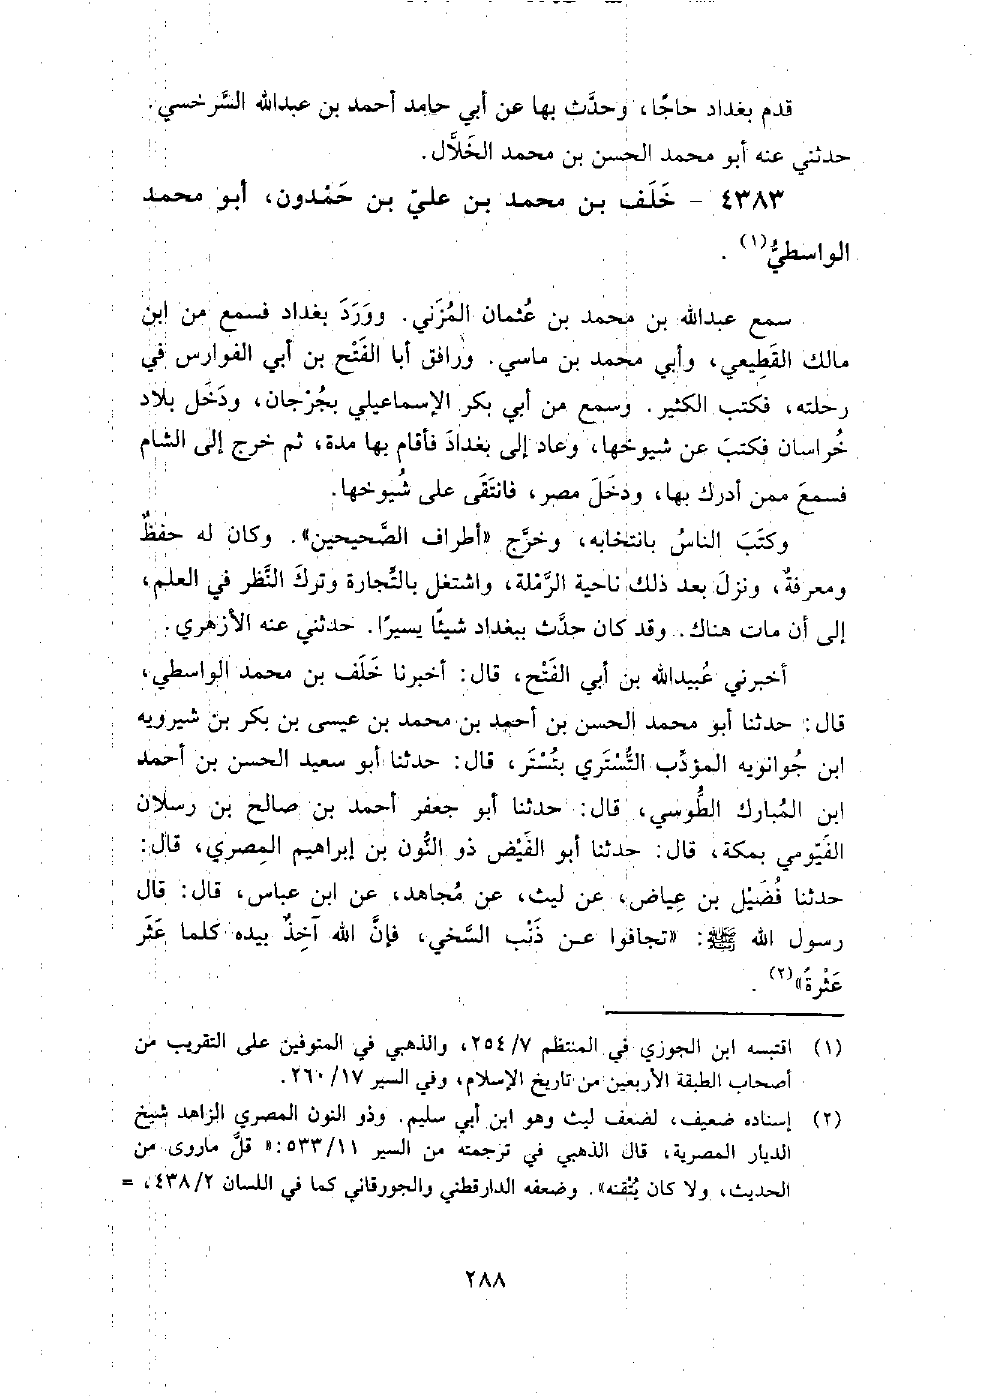 قدم بغداد حاجًا، وحدَّث بها عن أبي حامد أحمد بن عبدالله السَّرخسي.
حدثني عنه أبو محمد الحسن بن محمد الخَلَّال.
٤٣٨٣ - خَلَف بن محمد بن عليّ بن حَمْدون، أبو محمد
الواسطيُّ(١).
سمع عبدالله بن محمد بن عُثمان المُزَني. ووَرَدَ بغداد فسمع من ابن
مالك القَطِيعي، وأبي محمد بن ماسي. ورافق أبا الفَتْح بن أبي الفوارس في
رحلته، فكتب الكثير. وسمع من أبي بكر الإسماعيلي بجُرْجان، ودَخَل بلاد
خُراسان فكتبَ عن شيوخها، وعاد إلى بغدادَ فأقام بها مدة، ثم خرج إلى الشام
فسمعَ ممن أدرك بها، ودخَلَ مصر، فانتَقَى على شُيوخها.
وكتَبَ الناسُ بانتخابه، وخرَّج «أطراف الصَّحيحين». وكان له حفظٌ
ومعرفةٌ، ونزلَ بعد ذلك ناحية الرَّمْلة، واشتغل بالتِّجارة وتركَ النَّظر في العلم،
إلى أن مات هناك. وقد كان حدَّث ببغداد شيئًا يسيرًا. حدثني عنه الأزهري.
أخبرني عُبيدالله بن أبي الفَتْح، قال: أخبرنا خَلَف بن محمد الواسطي،
قال: حدثنا أبو محمد الحسن بن أحمد بن محمد بن عيسى بن بكر بن شيرويه
ابن جُوانويه المؤدِّب التُّسْتَري بتُسْتَر، قال: حدثنا أبو سعيد الحسن بن أحمد
ابن المُبارك الطُّوسي، قال: حدثنا أبو جعفر أحمد بن صالح بن رسلان
الفَيّومي بمكة، قال: حدثنا أبو الفَيْض ذو النُّون بن إبراهيم المِصري، قال:
حدثنا فُضَيْل بن عِياض، عن ليث، عن مُجاهد، عن ابن عباس، قال: قال
رسول الله ﷺ: «تجافوا عن ذَنْب السَّخي، فإنَّ الله آخِذٌ بيده كلما عَثَر
عَثْرةً»(٢).
(١) اقتبسه ابن الجوزي في المنتظم ٧/ ٢٥٤، والذهبي في المتوفين على التقريب من
أصحاب الطبقة الأربعين من تاريخ الإسلام، وفي السير ١٧/ ٢٦٠.
(٢) إسناده ضعيف، لضعف ليث وهو ابن أبي سليم. وذو النون المصري الزاهد شيخ
الديار المصرية، قال الذهبي في ترجمته من السير ١١/ ٥٣٣:« قلَّ ماروى من
الحديث، ولا كان يُتْقنه». وضعفه الدارقطني والجورقاني كما في اللسان ٢/ ٤٣٨، =
٢٨٨